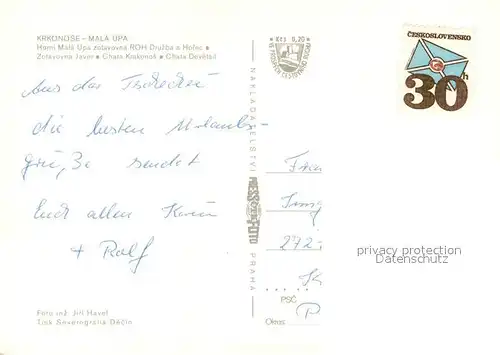 KRKONOŠE – MALÁ ÚPA
Horní Malá Úpa zotavovna ROH Družba a Hořec •
Zotavovna Javor • Chata Krakonoš • Chata Devětsil
Kčs 0,20
ČESKOSLOVENSKO
30h
Aus der Tschechei
die besten Urlaubs-
grüße sendet
Euch allen Karin
+ Ralf
NAKLADATELSTVÍ
PRESSFOTO
PRAHA
272
PSČ
Okres
privacy protection
Datenschutz
Foto inž. Jiří Havel
Tisk Severografia Děčín